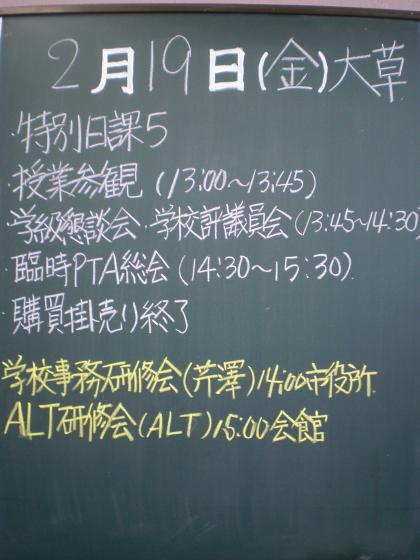 2月19日(金)大草
・特別日課5
・授業参観 (13:00～13:45)
・学級懇談会・学校評議員会(13:45～14:30)
・臨時PTA総会(14:30～15:30)
・購買掛売り終了
学校事務研修会(芹澤)14:00市役所
ALT研修会(ALT)15:00会館